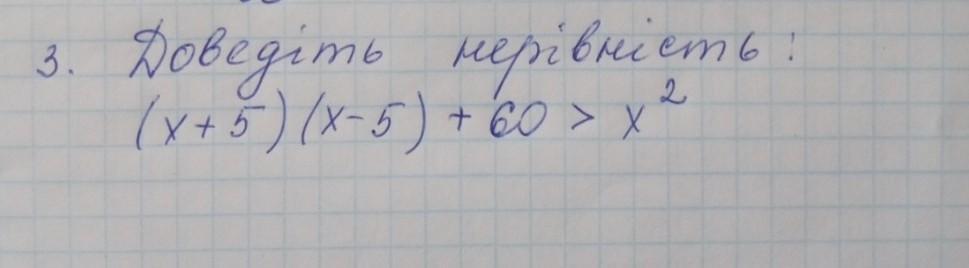 3. Доведіть нерівність:
(x+5)(x-5) + 60 > x²